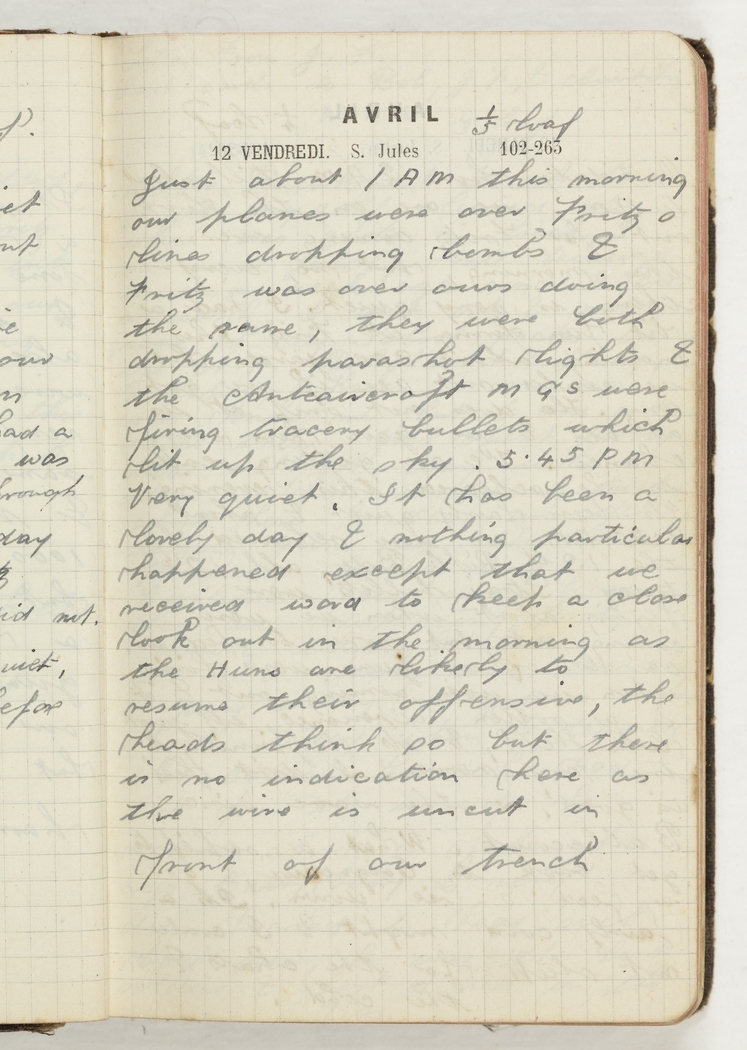 AVRIL 1/5 loaf
12 VENDREDI. S. Jules 102-263
Just about 1 AM this morning
our planes were over Fritz s
lines dropping bombs &
Fritz was over ours doing
the same, they were both
dropping parashot lights &
the Anteaircraft M Gs were
firing tracery bullets which
lit up the sky. 5.45 PM
Very quiet. It has been a
lovely day & nothing particular
happened except that we
received word to keep a close
look out in the morning as
the Huns are likely to
resume their offensive, the
heads think so but there
is no indication here as
the wire is uncut in
front of our trench
our
had a
was
day
did not.